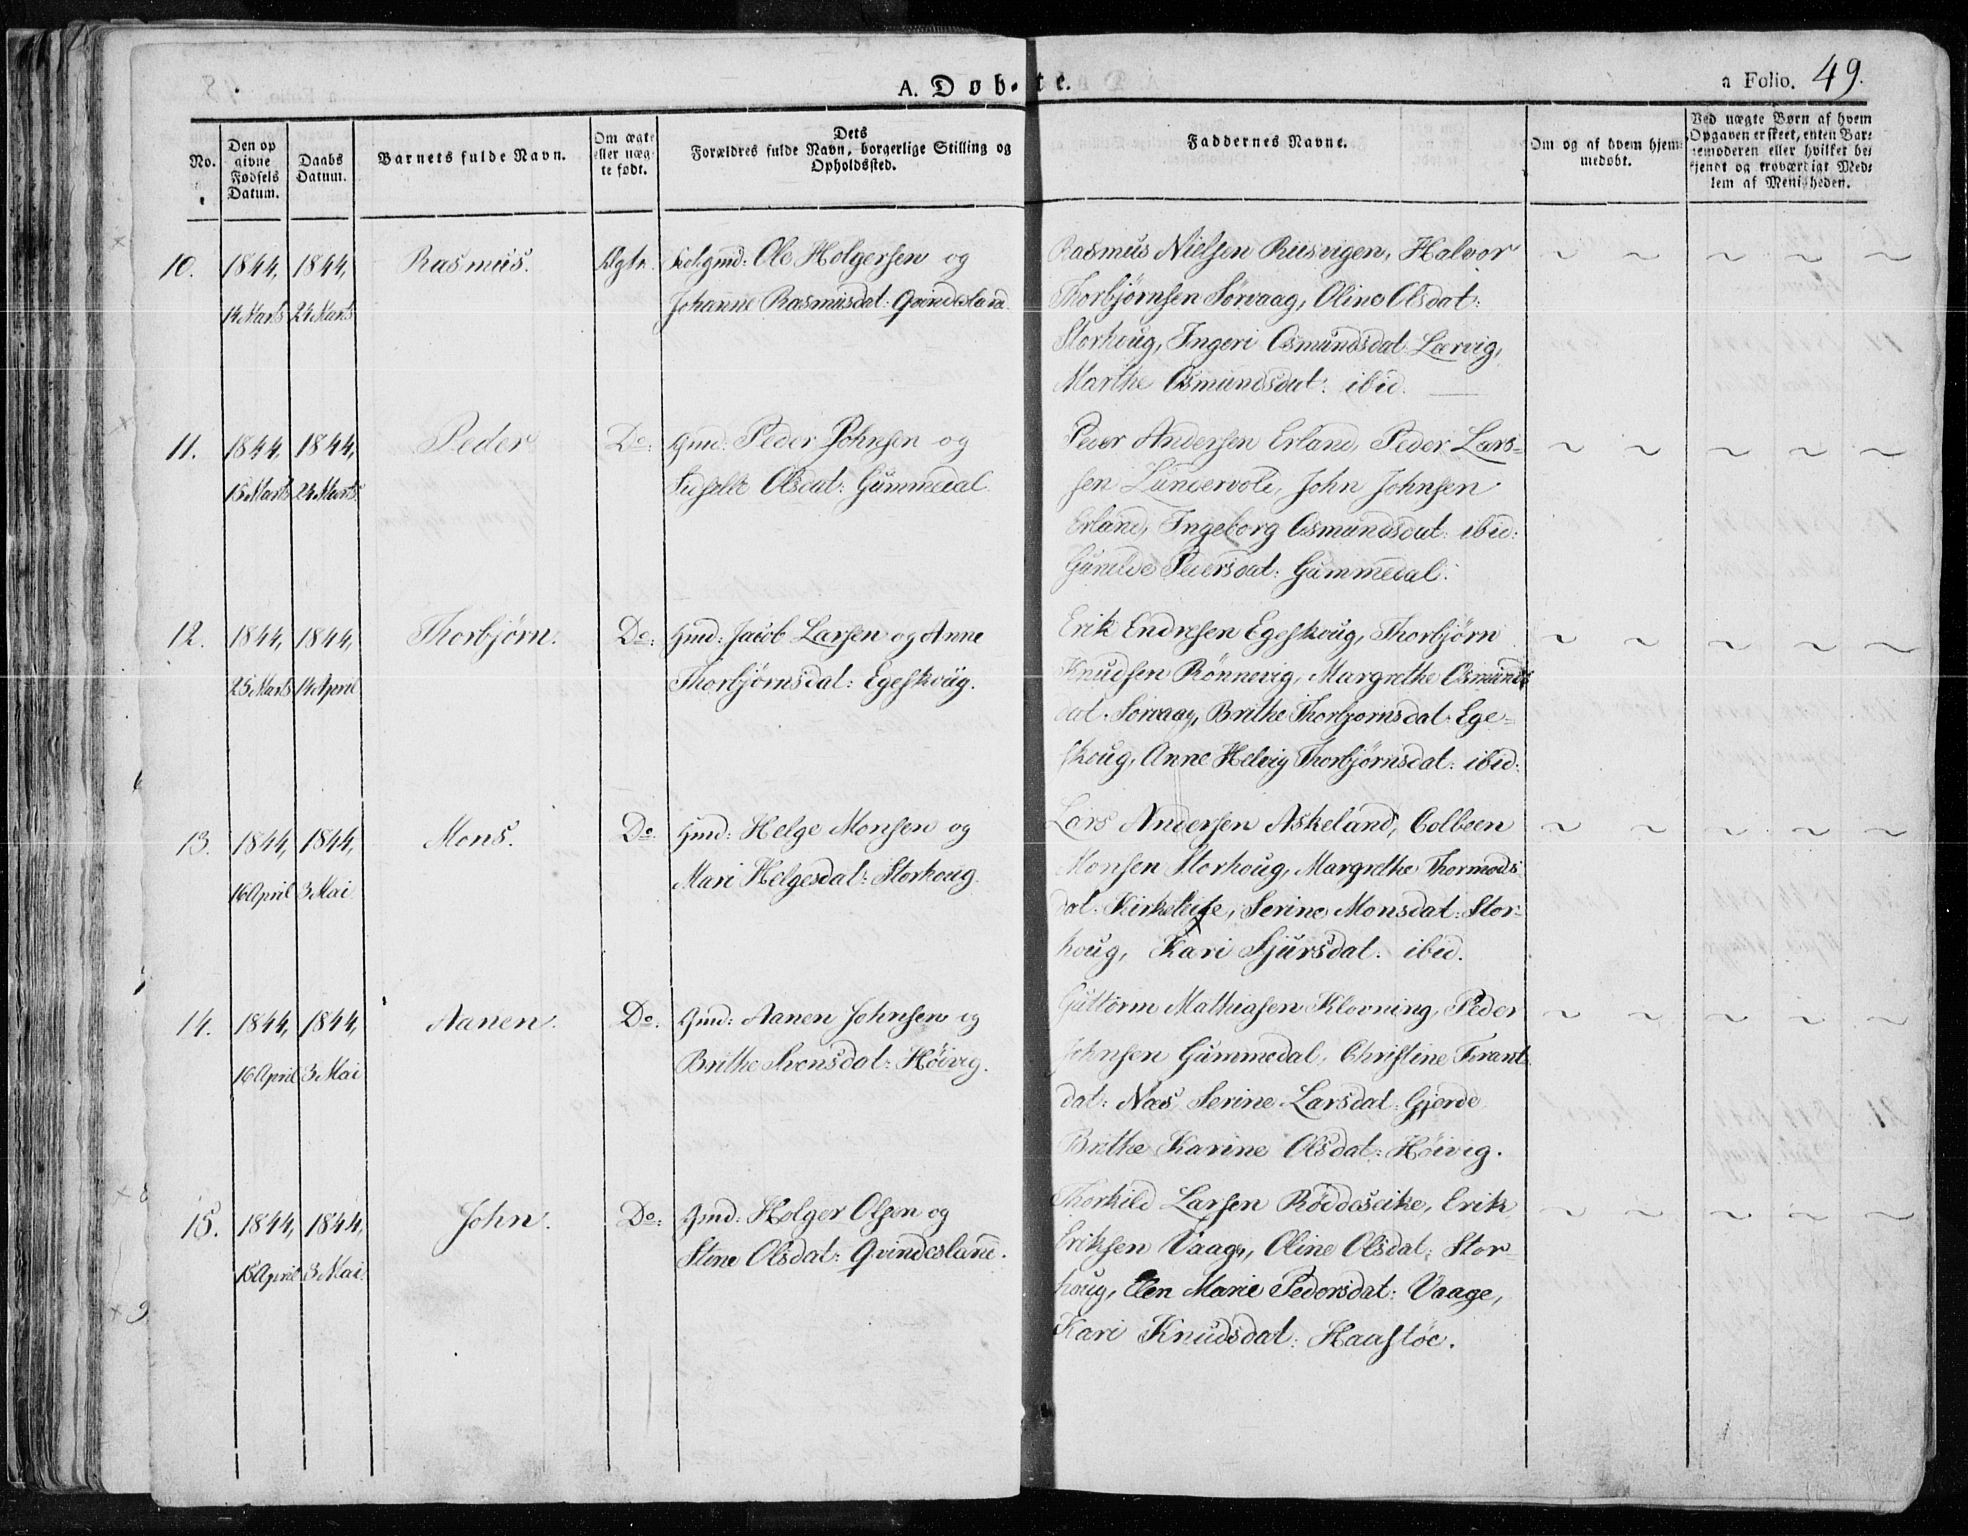 A. Døb-te.
a Folio. 49.
No.
Den op
givne
Fødsels
Datum.
Daabs
Datum.
Barnets fulde Navn.
Om ægte
eller uæg-
te født.
Dets
Forældres fulde Navn, borgerlige Stilling og
Opholdssted.
Faddernes Navne.
Om og af hvem hjem-
medøbt.
Ved uægte Børn af hvem
Opgaven er skeet, enten Bar-
nemoderen eller hvilket be-
kjendt og troværdigt Med-
lem af Menigheden.
10.
1844,
14 Marts
1844,
24 Marts
Rasmus.
Ole Holgersen og
Johanne Rasmusdat: Qvindesland.
Rasmus Nielsen Rusvigen, Halvor
Thorbjørnsen Sørvaag, Oline Olsdat:
Storhoug, Ingeri Osmundsdat: Lærvig,
Marthe Osmundsdat: ibid.
11.
1844,
15 Marts
1844,
24 Marts
Peder
Do:
Gmd: Peder Johnsen og
Sidselle Olsdat: Gummedal.
Peder Andersen Erland, Peder Lars-
sen Lundervold, John Johnsen
Erland, Ingeborg Osmundsdat: ibid:
Gunilde Pedersdat: Gummedal.
12.
1844,
25 Marts
1844,
14 April
Thorbjørn.
Do:
Gmd: Jacob Larsen og Anne
Thorbjørnsdat: Egeskoug.
Erik Endresen Egeskoug, Thorbjørn
Knudsen Rönnevig, Margrethe Osmunds
dat: Sørvaag, Brithe Thorbjørnsdat: Ege-
skoug, Anne Helvig Thorbjørnsdat: ibid:
13.
1844,
16 April
1844,
3 Mai
Mons.
Do:
Gmd: Helge Monsen og
Mari Helgesdat: Storhoug.
Lars Andersen Askeland, Colbeen
Monsen Storhoug, Margrethe Thormods
dat: Serine Monsdat: Stor-
houg, Kari Sjursdat: ibid.
14.
1844,
16 April
1844,
3 Mai
Aanen.
Do:
Gmd: Aanen Johnsen og
Brithe Svensdat: Höivig.
Guttorm Mathiasen Klovning, Peder
Johnsen Gummedal, Christine
dat: Næs, Serine Larsdat: Gjerde
Brithe Karine Olsdat: Höivig.
15.
1844,
15 April
1844,
3 Mai
John.
Do:
Gmd: Holger Olsen og
Stone Olsdat: Qvindesland.
Thorkild Larsen Erik
Eriksen Vaage, Oline Olsdat: Stor-
houg, Elen Marie Pedersdat: Vaage,
Kari Knudsdat: